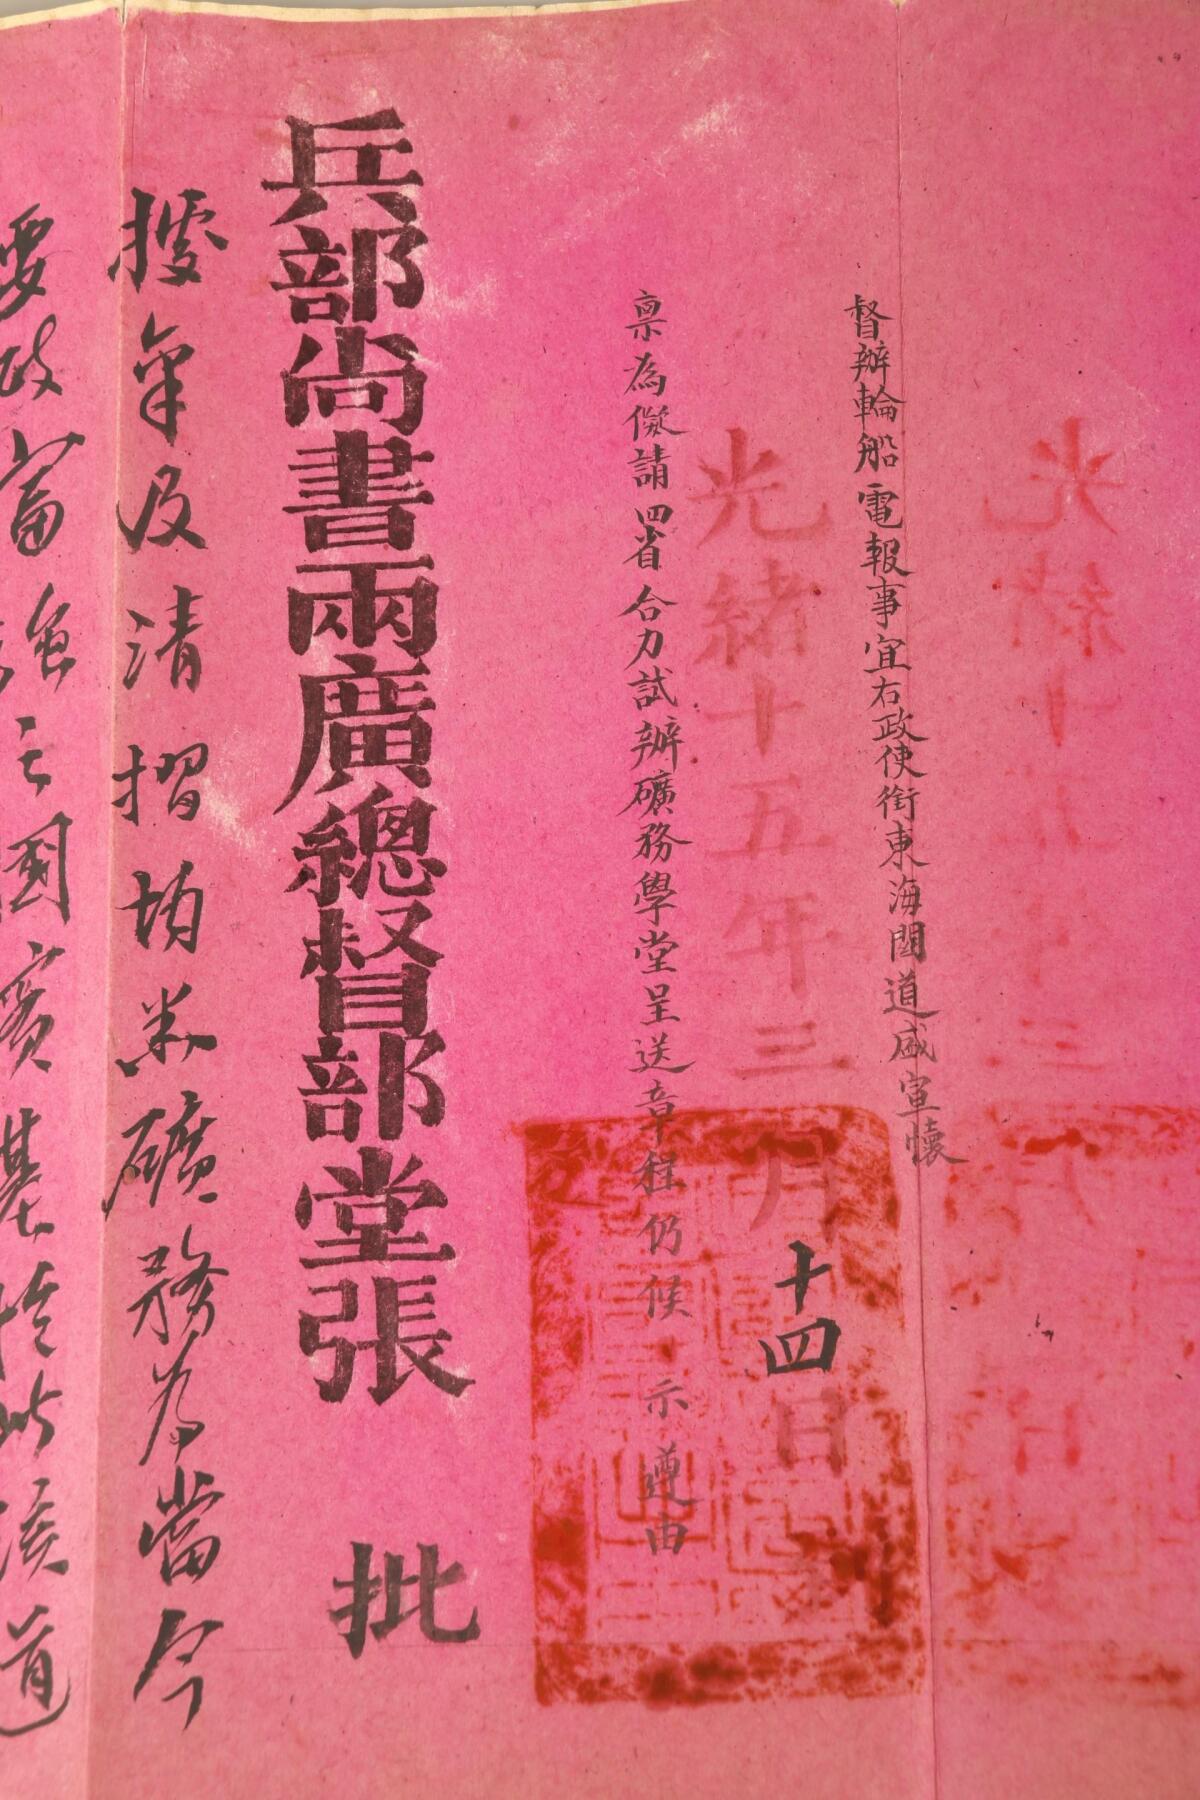 光緒十五年三月 日
督辦輪船電報事宜右政使銜東海關道盛宣懷
光緒十五年三月十四日
稟為儗請四省合力試辦礦務學堂呈送章程仍候 示遵由
兵部尚書兩廣總督部堂張 批
據稟及清摺均悉礦務為當今
要政富強之國實基於此該道